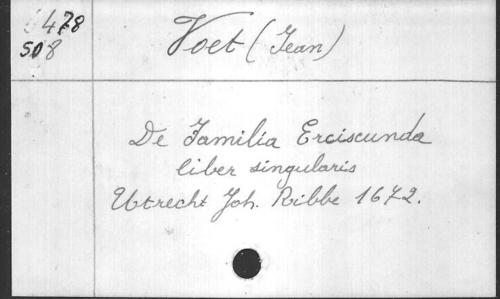 478
508
Voet (Jean)
De Familia Erciscunda
liber singularis
Utrecht Joh. Ribbe 1672.